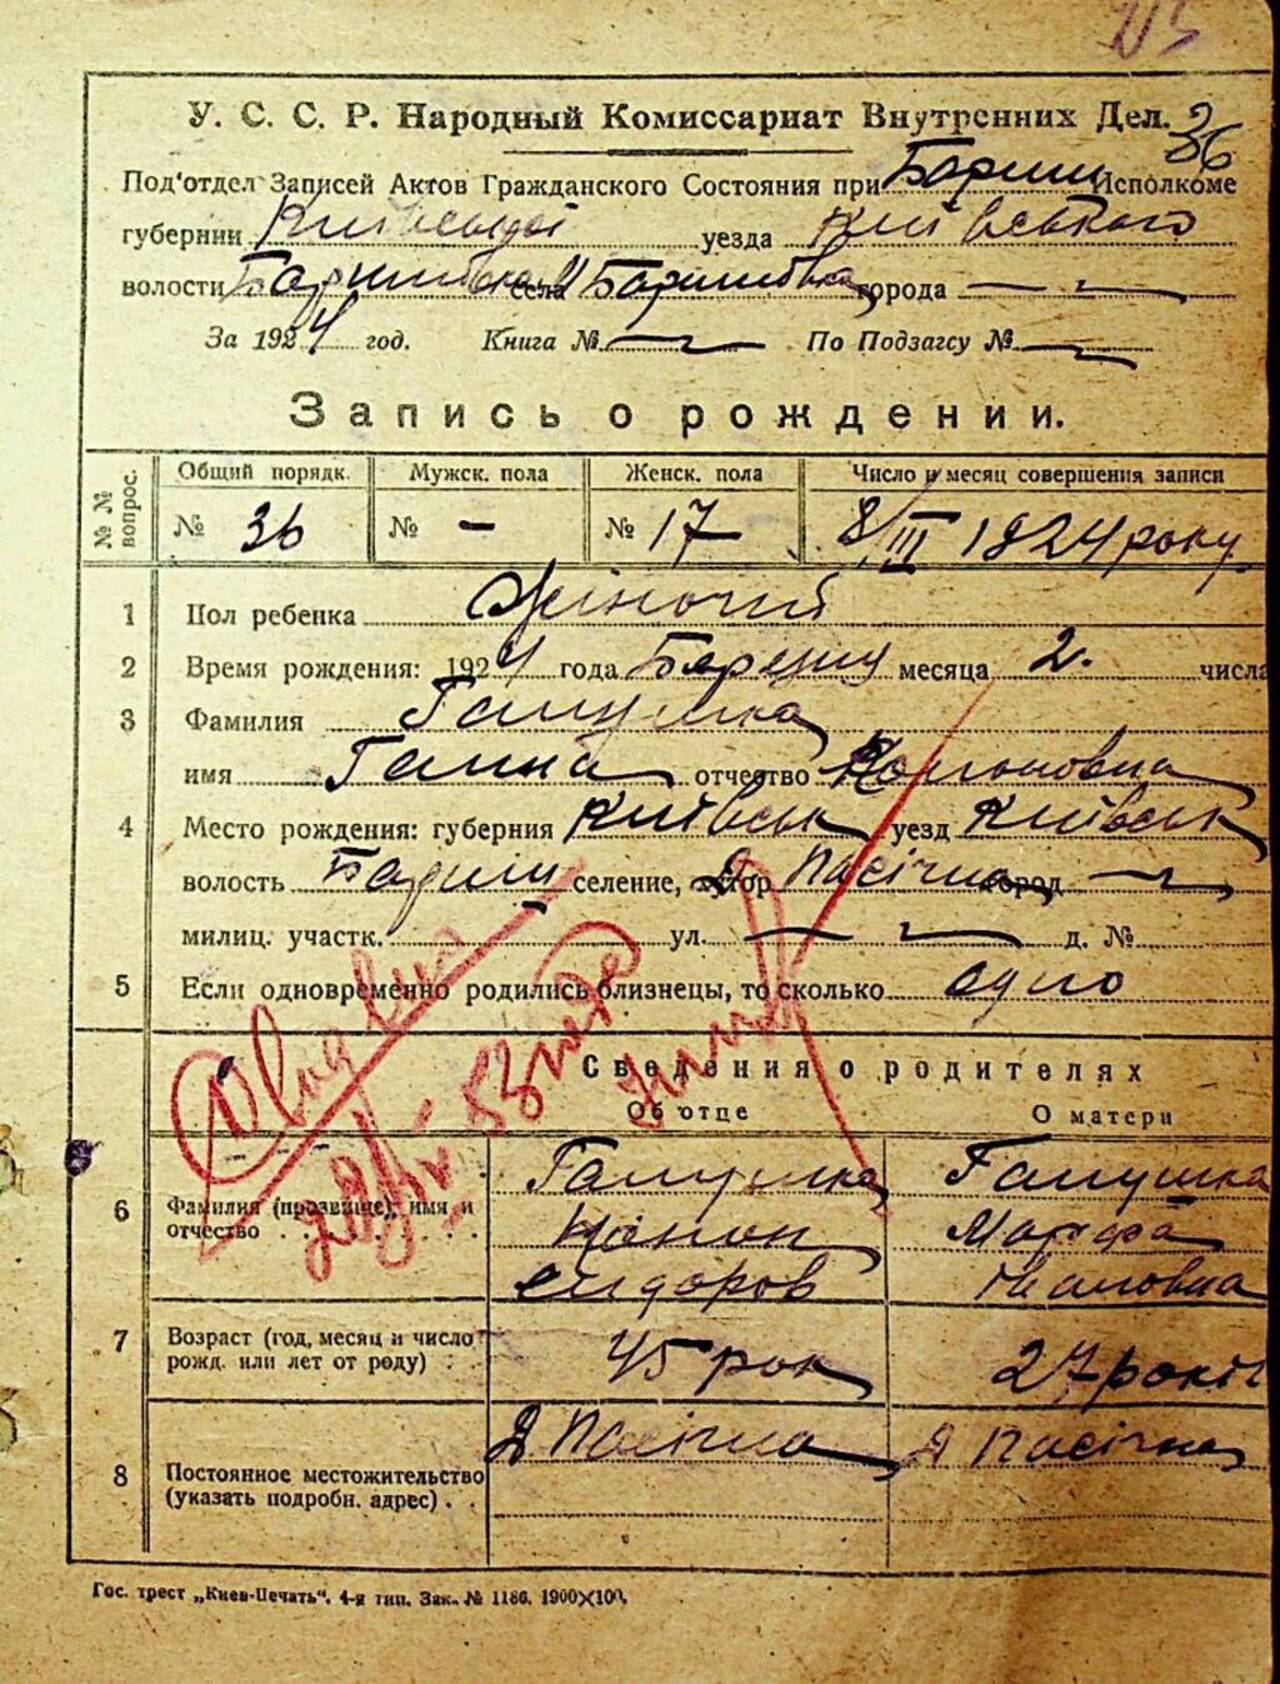 У. С. С. Р. Народный Комиссариат Внутренних Дел. 36
Под'отдел Записей Актов Гражданского Состояния при Бориш Исполкоме
губернии Київської уезда Київського
волости села Баришовка города
За 1924 год. Книга № По Подзагсу №
Запись о рождении.
№ № вопрос. Общий порядк. Мужск. пола Женск. пола Число и месяц совершения записи
№ 36 № — № 17 8/III 1924 року
1 Пол ребенка Жіночий
2 Время рождения: 1924 года Березня месяца 2. числа
3 Фамилия Галушка
имя Ганна отчество Кононовна
4 Место рождения: губерния Київськ уезд Київськ
волость Бариш селение, хутор Пасічна город
милиц. участк. ул. — д. №
5 Если одновременно родились близнецы, то сколько одно
Сведения о родителях
Об отце О матери
6 Фамилия (прозвище), имя и отчество Галушка Конон Сидоров Галушка Марфа Ивановна
7 Возраст (год, месяц и число рожд. или лет от роду) 45 рок 27 років
8 Постоянное местожительство (указать подробн. адрес) Д Пасічна Д Пасічна
Гос. трест „Киев-Печать“. 4-я тип. Зак. № 1186. 1900×100.